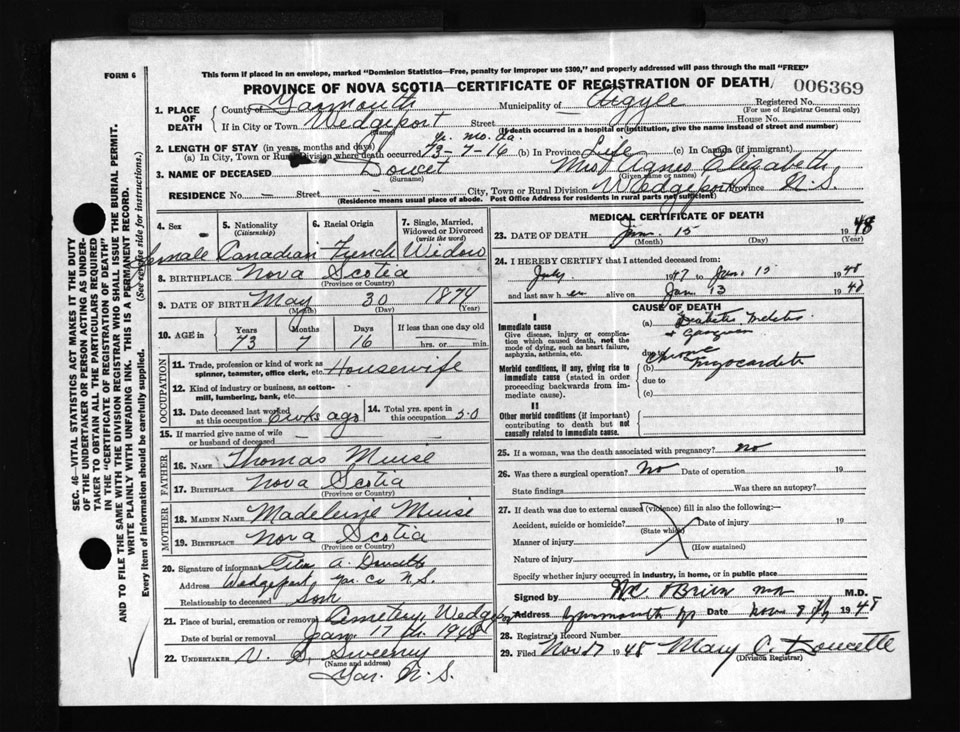 FORM 6
This form if placed in an envelope, marked "Dominion Statistics—Free, penalty for improper use $300," and properly addressed will pass through the mail "FREE"
PROVINCE OF NOVA SCOTIA—CERTIFICATE OF REGISTRATION OF DEATH
006369
1. PLACE OF DEATH
County of Yarmouth Municipality of Argyle Registered No.
(For use of Registrar General only)
If in City or Town Wedgeport Street House No.
(Name) (If death occurred in a hospital or institution, give the name instead of street and number)
2. LENGTH OF STAY (in years, months and days) yr. mo. da.
(a) In City, Town or Rural Division where death occurred 73-7-16 (b) In Province Life (c) In Canada (if immigrant)
3. NAME OF DECEASED Doucet Mrs Agnes Elizabeth
(Surname) (Given name or names)
RESIDENCE No. – Street – City, Town or Rural Division Wedgeport Province N.S.
(Residence means usual place of abode. Post Office Address for residents in rural parts not sufficient)
4. Sex
5. Nationality (Citizenship)
6. Racial Origin
7. Single, Married, Widowed or Divorced (write the word)
Female Canadian French Widow
8. BIRTHPLACE Nova Scotia
(Province or Country)
9. DATE OF BIRTH May 30 1874
(Month) (Day) (Year)
10. AGE in Years Months Days If less than one day old
73 7 16 hrs. or min.
OCCUPATION
11. Trade, profession or kind of work as spinner, teamster, office clerk, etc. Housewife
12. Kind of industry or business, as cotton-mill, lumbering, bank, etc.
13. Date deceased last worked at this occupation 6 wks ago
14. Total yrs. spent in this occupation 50
15. If married give name of wife or husband of deceased –
FATHER
16. NAME Thomas Muise
17. BIRTHPLACE Nova Scotia
(Province or Country)
MOTHER
18. MAIDEN NAME Madeleine Muise
19. BIRTHPLACE Nova Scotia
(Province or Country)
20. Signature of informant A. Doucette
Address Wedgeport Yar. Co N.S.
Relationship to deceased Son
21. Place of burial, cremation or removal Cemetery, Wedgeport
Date of burial or removal Jan. 17 th. 1948
22. UNDERTAKER V. S. Sweeny
(Name and address)
Yar. N.S.
MEDICAL CERTIFICATE OF DEATH
23. DATE OF DEATH Jan. 15 1948
(Month) (Day) (Year)
24. I HEREBY CERTIFY that I attended deceased from:
July 1947 to Jan. 15 1948
and last saw h er alive on Jan 13 1948
CAUSE OF DEATH
I
Immediate cause
Give disease, injury or complication which caused death, not the mode of dying, such as heart failure, asphyxia, asthenia, etc.
(a) Diabetes Melitis
due to
Morbid conditions, if any, giving rise to immediate cause (stated in order proceeding backwards from immediate cause).
(b) Chronic Myocardits
due to
(c)
II
Other morbid conditions (if important) contributing to death but not causally related to immediate cause.
25. If a woman, was the death associated with pregnancy? no
26. Was there a surgical operation? No Date of operation 19
State findings Was there an autopsy?
27. If death was due to external causes (violence) fill in also the following:—
Accident, suicide or homicide? Date of injury 19
(State which)
Manner of injury
(How sustained)
Nature of injury
Specify whether injury occurred in industry, in home, or in public place
Signed by O'Brien M.D.
Address Yarmouth Date Nov 1948
28. Registrar's Record Number
29. Filed Nov 1948 Mary C. Doucette
(Division Registrar)
SEC. 46—VITAL STATISTICS ACT MAKES IT THE DUTY OF THE UNDERTAKER OR PERSON ACTING AS UNDERTAKER TO OBTAIN ALL THE PARTICULARS REQUIRED IN THE "CERTIFICATE OF REGISTRATION OF DEATH" AND TO FILE THE SAME WITH THE DIVISION REGISTRAR WHO SHALL ISSUE THE BURIAL PERMIT.
WRITE PLAINLY WITH UNFADING INK. THIS IS A PERMANENT RECORD.
Every item of information should be carefully supplied. (See reverse side for instructions.)